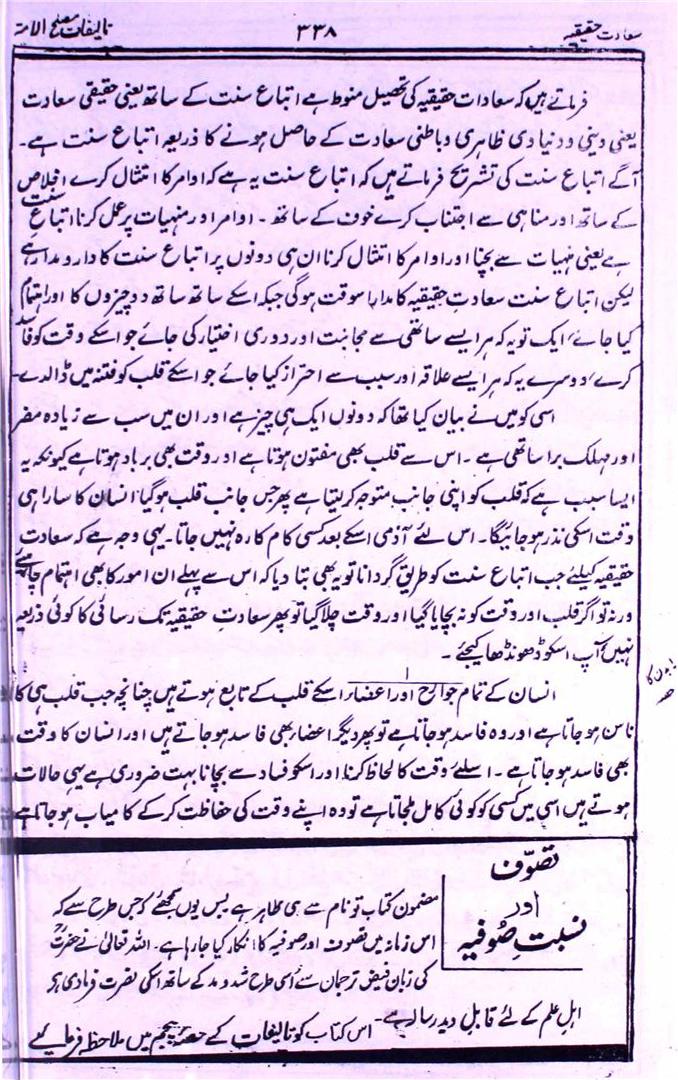 سعادت حقیقیہ
۳۳۸
تالیفات مصلح الامۃ
فرماتے ہیں کہ سعادات حقیقیہ کی تحصیل منوط ہے اتباع سنت کے ساتھ یعنی حقیقی سعادت
یعنی دینی و دنیاوی ظاہری و باطنی سعادت کے حاصل ہونے کا ذریعہ اتباع سنت ہے۔
آگے اتباع سنت کی تشریح فرماتے ہیں کہ اتباع سنت یہ ہے کہ اوامر کا امتثال کرے اخلاص
کے ساتھ اور مناہی سے اجتناب کرے خوف کے ساتھ۔ اوامر اور منہیات پر عمل کرنا اتباع سنت
ہے یعنی منہیات سے بچنا اور اوامر کا امتثال کرنا ان ہی دونوں پر اتباع سنت کا دار و مدار ہے
لیکن اتباع سنت سعادتِ حقیقیہ کا مدار اسوقت ہوگی جبکہ اسکے ساتھ ساتھ دو چیزوں کا اور اہتمام
کیا جائے، ایک تو یہ کہ ہر ایسے ساتھی سے مجانبت اور دوری اختیار کی جائے جو اسکے وقت کو فاسد
کرے، دوسرے یہ کہ ہر ایسے علاقہ اور سبب سے احتراز کیا جائے جو اسکے قلب کو فتنہ میں ڈالدے۔
اسی کو میں نے بیان کیا تھا کہ دونوں ایک ہی چیز ہے اور ان میں سب سے زیادہ مضر
اور مہلک برا ساتھی ہے۔ اس سے قلب بھی مفتون ہوتا ہے اور وقت بھی برباد ہوتا ہے کیونکہ یہ
ایسا سبب ہے کہ قلب کو اپنی جانب متوجہ کرلیتا ہے پھر جس جانب قلب ہو گیا انسان کا سارا ہی
وقت اسکی نذر ہو جائیگا۔ اس لئے آدمی اسکے بعد کسی کام کا رہ نہیں جاتا۔ یہی وجہ ہے کہ سعادت
حقیقیہ کیلئے جب اتباع سنت کو طریق گردانا تو یہ بھی بتا دیا کہ اس سے پہلے ان امور کا بھی اہتمام چاہئے
ورنہ تو اگر قلب اور وقت کو نہ بچایا گیا اور وقت چلا گیا تو پھر سعادتِ حقیقیہ تک رسائی کا کوئی ذریعہ
نہیں آپ اسکو ڈھونڈھا کیجئے۔
انسان کے تمام جوارح اور اعضاء اسکے قلب کے تابع ہوتے ہیں چنانچہ جب قلب ہی کا
ناس ہو جاتا ہے اور وہ فاسد ہو جاتا ہے تو پھر دیگر اعضاء بھی فاسد ہو جاتے ہیں اور انسان کا وقت
بھی فاسد ہو جاتا ہے۔ اسلئے وقت کا لحاظ کرنا اور اسکو فساد سے بچانا بہت ضروری ہے یہی حالات
ہوتے ہیں اسی میں کسی کو کوئی کامل ملجاتا ہے تو وہ اپنے وقت کی حفاظت کرکے کامیاب ہو جاتا ہے
تصوّف
اور
نسبتِ صُوفیہ
مضمون کتاب تو نام سے ہی ظاہر ہے بس یوں سمجھئے کہ جس طرح سے کہ
اس زمانہ میں تصوف اور صوفیہ کا انکار کیا جا رہا ہے۔ اللہ تعالیٰ نے حضرتؒ
کی زبان فیض ترجمان سے اُسی طرح شد و مد کے ساتھ اسکی نصرت فرما دی ہے
اہلِ علم کے لئے قابلِ دید رسالہ ہے۔ اس کتاب کو تالیفات کے حصہ پنجم میں ملاحظہ فرمائیے